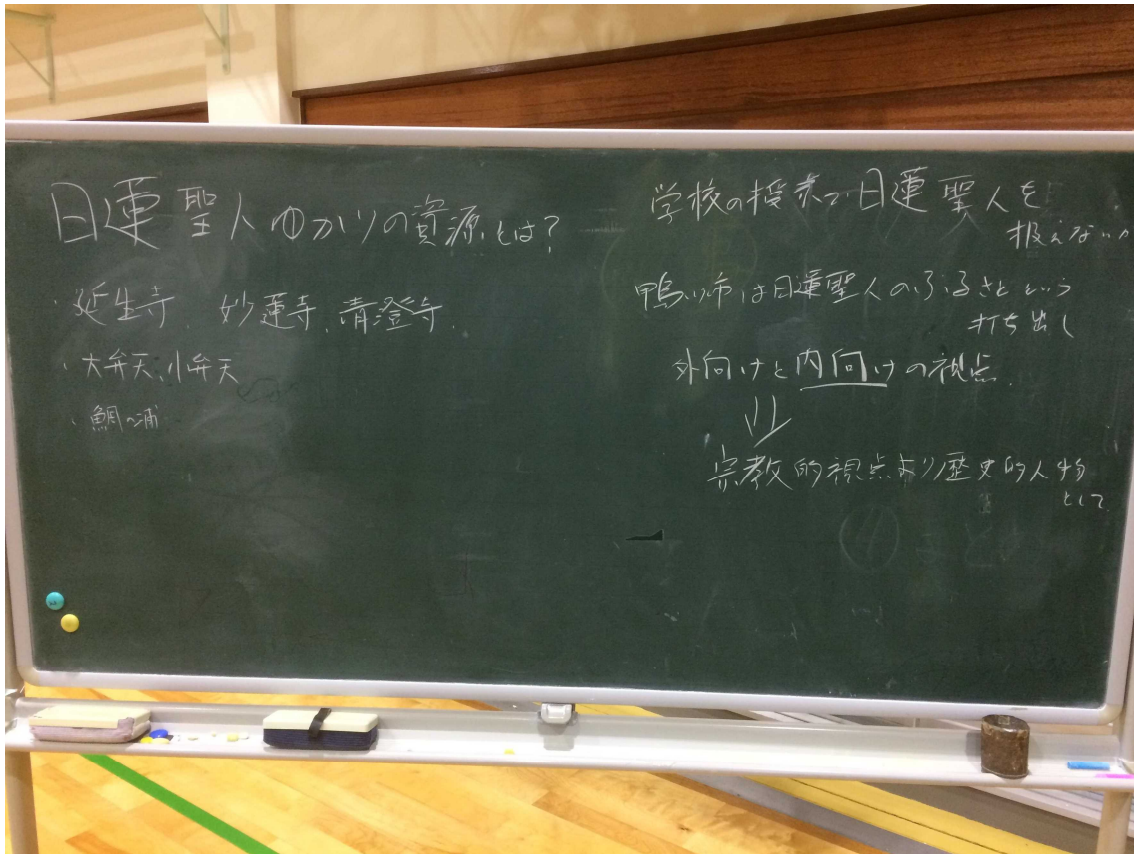 日蓮聖人ゆかりの資源とは?
・延生寺、妙蓮寺、清澄寺、
・大弁天、小弁天
・鯛の浦
学校の授業で日蓮聖人を
扱えないか
鴨川市は日蓮聖人のふるさとという
打ち出し
外向けと内向けの視点。
宗教的視点より歴史的人物
として